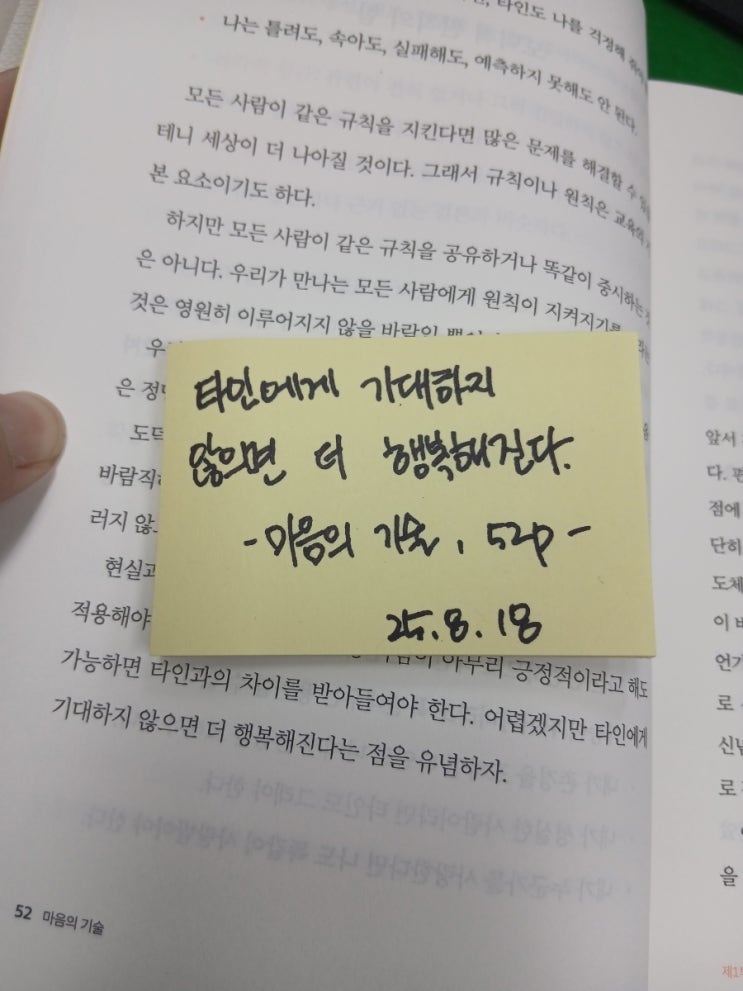 타인도 나를 걱정해
• 나는 틀려도, 속아도, 실패해도, 예측하지 못해도 안 된다.
모든 사람이 같은 규칙을 지킨다면 많은 문제를 해결할 수
테니 세상이 더 나아질 것이다. 그래서 규칙이나 원칙은 교육의
본 요소이기도 하다.
하지만 모든 사람이 같은 규칙을 공유하거나 똑같이 중시하는
은 아니다. 우리가 만나는 모든 사람에게 원칙이 지켜지기를
것은 영원히 이루어지지 않을 바람일
우
은 정
타인에게 기대하지
않으면 더 행복해진다.
-마음의 기술, 52p-
25.8.18
도덕
바람직
러지 않
현실과
적용해야
아무리 긍정적이라고 해도
가능하면 타인과의 차이를 받아들여야 한다. 어렵겠지만 타인에게
기대하지 않으면 더 행복해진다는 점을 유념하자.
52 마음의 기술
앞서
다. 편
점에
단히
도체
이 바
언가
로
신념
로
을
제1부